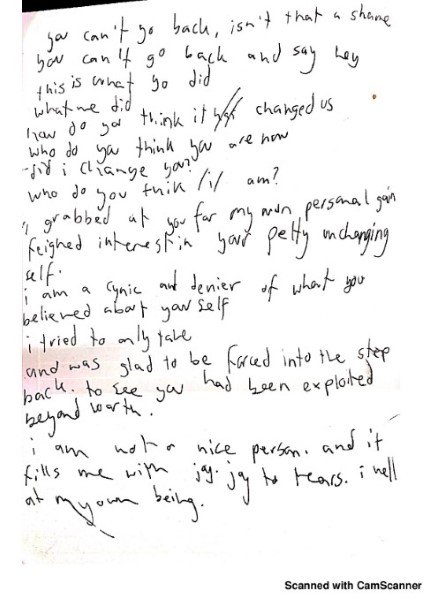 you can't go back, isn't that a shame
you can't go back and say hey
this is what yo did
what we did
how do you think it has changed us
who do you think you are now
did i change you?
who do you think /i/ am?
i grabbed at you for my own personal gain
feigned interest in your petty unchanging
self.
i am a cynic and denier of what you
believed about yourself
i tried to only take
and was glad to be forced into the step
back. to see you had been exploited
beyond worth.
i am not a nice person. and it
fills me with joy. joy to tears. i
at my own being.
Scanned with CamScanner